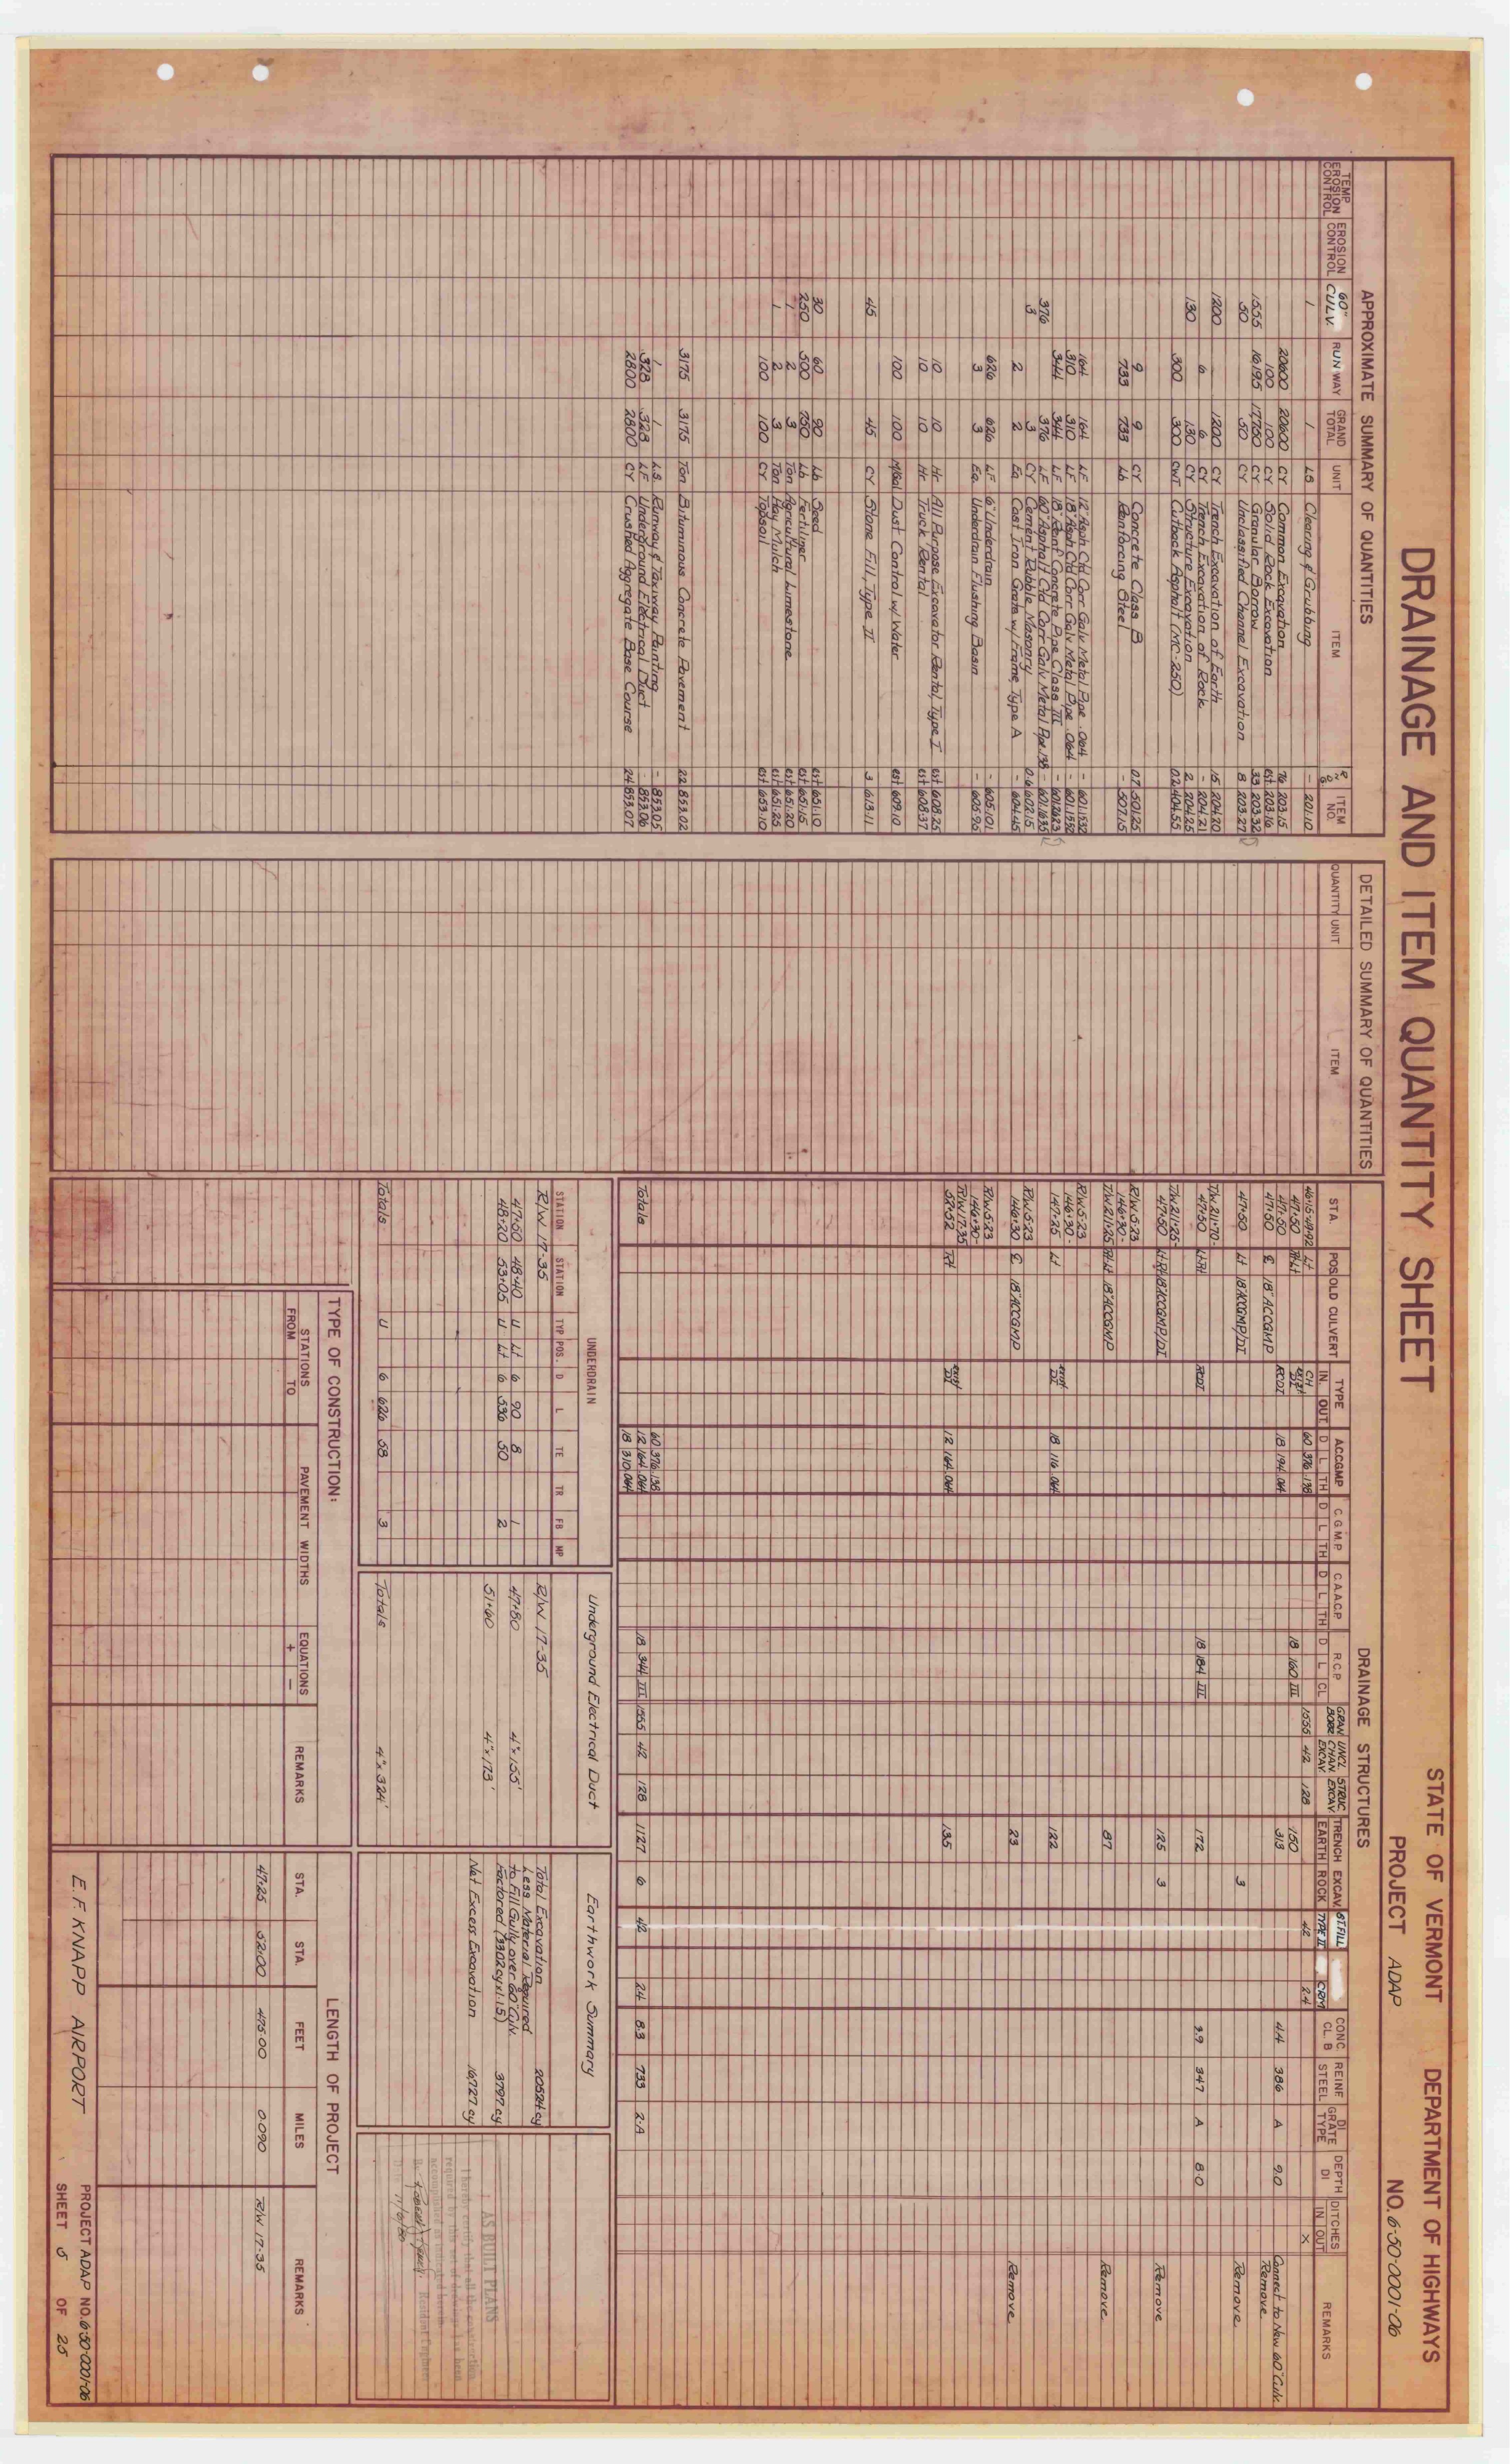 DRAINAGE AND ITEM QUANTITY SHEET
STATE OF VERMONT DEPARTMENT OF HIGHWAYS
PROJECT ADAP NO. 6-50-0001-06
APPROXIMATE SUMMARY OF QUANTITIES
TEMP EROSION CONTROL EROSION CONTROL 60" CULV. RUNWAY GRAND TOTAL UNIT ITEM ITEM NO.
1 1 LS Clearing & Grubbing - 201.10
20600 20600 CY Common Excavation 76 203.15
100 100 CY Solid Rock Excavation est 203.16
1555 16195 17750 CY Granular Borrow 33 203.32
50 50 CY Unclassified Channel Excavation 8 203.27
1200 1200 CY Trench Excavation of Earth 15 204.20
6 6 CY Trench Excavation of Rock - 204.21
130 130 CY Structure Excavation 2 204.25
300 300 CWT Cutback Asphalt (MC-250) 0.2 404.55
9 9 CY Concrete Class B 0.7 501.25
733 733 Lb Reinforcing Steel - 507.15
164 164 LF 12" Asph Ctd Corr Galv Metal Pipe .064 - 601.1532
310 310 LF 18" Asph Ctd Corr Galv Metal Pipe .064 - 601.1552
344 344 LF 18" Reinf Concrete Pipe Class III - 601.2623
376 376 LF 60" Asphalt Ctd Corr Galv Metal Pipe .138 - 601.1635
3 3 CY Cement Rubble Masonry 0.6 602.15
2 2 Ea Cast Iron Grate w/ Frame, Type A - 604.45
626 626 LF 6" Underdrain - 605.101
3 3 Ea. Underdrain Flushing Basin - 605.95
10 10 Hr All Purpose Excavator Rental, Type I est 608.25
10 10 Hr Truck Rental est 608.37
100 100 MGal Dust Control w/ Water est 609.10
45 45 CY Stone Fill, Type II 3 613.11
30 60 90 Lb Seed est 651.10
250 500 750 Lb Fertilizer est 651.15
1 2 3 Ton Agricultural Limestone est 651.20
1 2 3 Ton Hay Mulch est 651.25
100 100 CY Topsoil est 653.10
3175 3175 Ton Bituminous Concrete Pavement 22 853.02
1 1 LS. Runway & Taxiway Painting - 853.05
328 328 LF Underground Electrical Duct - 853.06
2800 2800 CY Crushed Aggregate Base Course 24 853.07
DETAILED SUMMARY OF QUANTITIES
QUANTITY UNIT ITEM
DRAINAGE STRUCTURES
STA. POS. OLD CULVERT TYPE IN. OUT ACCGMP D L TH C.G.M.P. D L TH C.A.A.C.P. D L TH R.C.P. D L CL GRAN BORR UNCL CHAN EXCAV. STRUC EXCAV TRENCH EXCAV. EARTH ROCK ST. FILL TYPE II CRM CONC. CL. B REINF STEEL DI GRATE TYPE DEPTH DI DITCHES IN OUT REMARKS
46+15-49+92 Lt CH 60 376 .138 1555 42 128 42 2.4 X
47+50 Rt-Lt exist DI 18 160 III 150
47+50 RCDI 18 194 .064 313 4.4 386 A 9.0 Connect to New 60" Culv.
47+50 ℄ 18" ACCGMP Remove
47+50 Lt 18" ACCGMP/DI 3 Remove
T/W 211+70-
47+50 Lt-Rt RCDI 18 184 III 172 3.9 347 A 8.0
T/W 211+25-
47+50 Lt-Rt 18" ACCGMP/DI 125 3 Remove
R/W 5-23
146+30-
T/W 211+25 Rt-Lt 18" ACCGMP 87 Remove
R/W 5-23
146+30-
147+25 Lt exist DI 18 116 .064 122
R/W 5-23
146+30 ℄ 18" ACCGMP 23 Remove
R/W 5-23
146+30-
R/W 17-35
52+52 Rt exist DI 12 164 .064 135
60 376 .138
Totals 12 164 .064 18 344 III 1555 42 128 1127 6 42 2.4 8.3 733 2-A
18 310 .064
UNDERDRAIN
STATION STATION TYP POS. D L TE TR FB MP
R/W 17-35
47+50 48+40 U Lt 6 90 8 1
48+20 53+05 U Lt 6 536 50 2
Totals U 6 626 58 3
Underground Electrical Duct
R/W 17-35
47+80 4" x 155'
51+60 4" x 173'
Totals 4" x 324'
Earthwork Summary
Total Excavation 20524 cy
Less Material Required
to Fill Gully over 60" Culv.
Factored (3302 cy x 1.15) 3797 cy
Net Excess Excavation 16727 cy
AS BUILT PLANS
I hereby certify that all the construction
required by this set of details has been
accomplished as indicated herein.
Resident Engineer
11/6/80
TYPE OF CONSTRUCTION:
STATIONS FROM TO PAVEMENT WIDTHS EQUATIONS + − REMARKS
LENGTH OF PROJECT
STA. STA. FEET MILES REMARKS
47+25 52+00 475.00 0.090 R/W 17-35
E. F. KNAPP AIRPORT
PROJECT ADAP NO. 6-50-0001-06
SHEET 5 OF 25